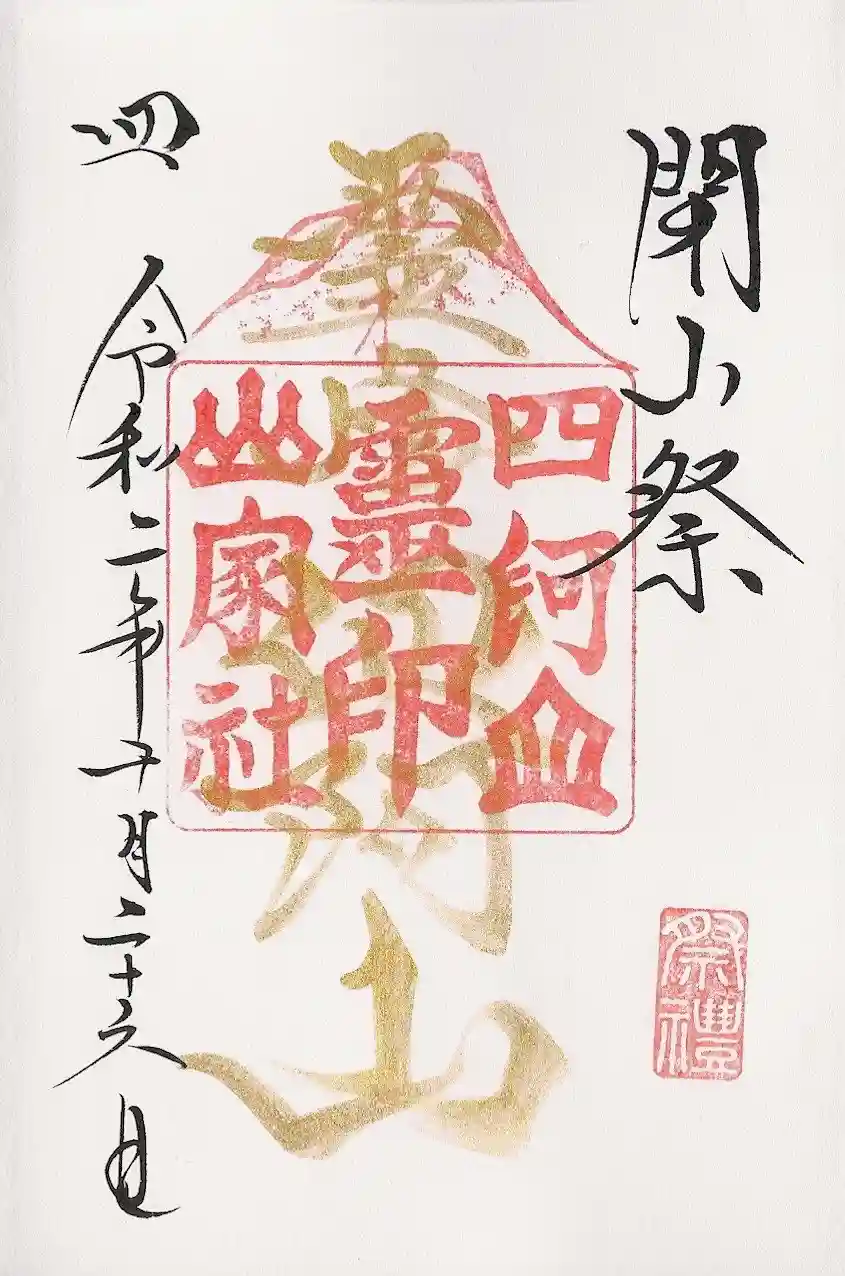 閉山祭
四阿山
靈印
山家社
四阿山
祭禮
四 令和二年十月二十六日